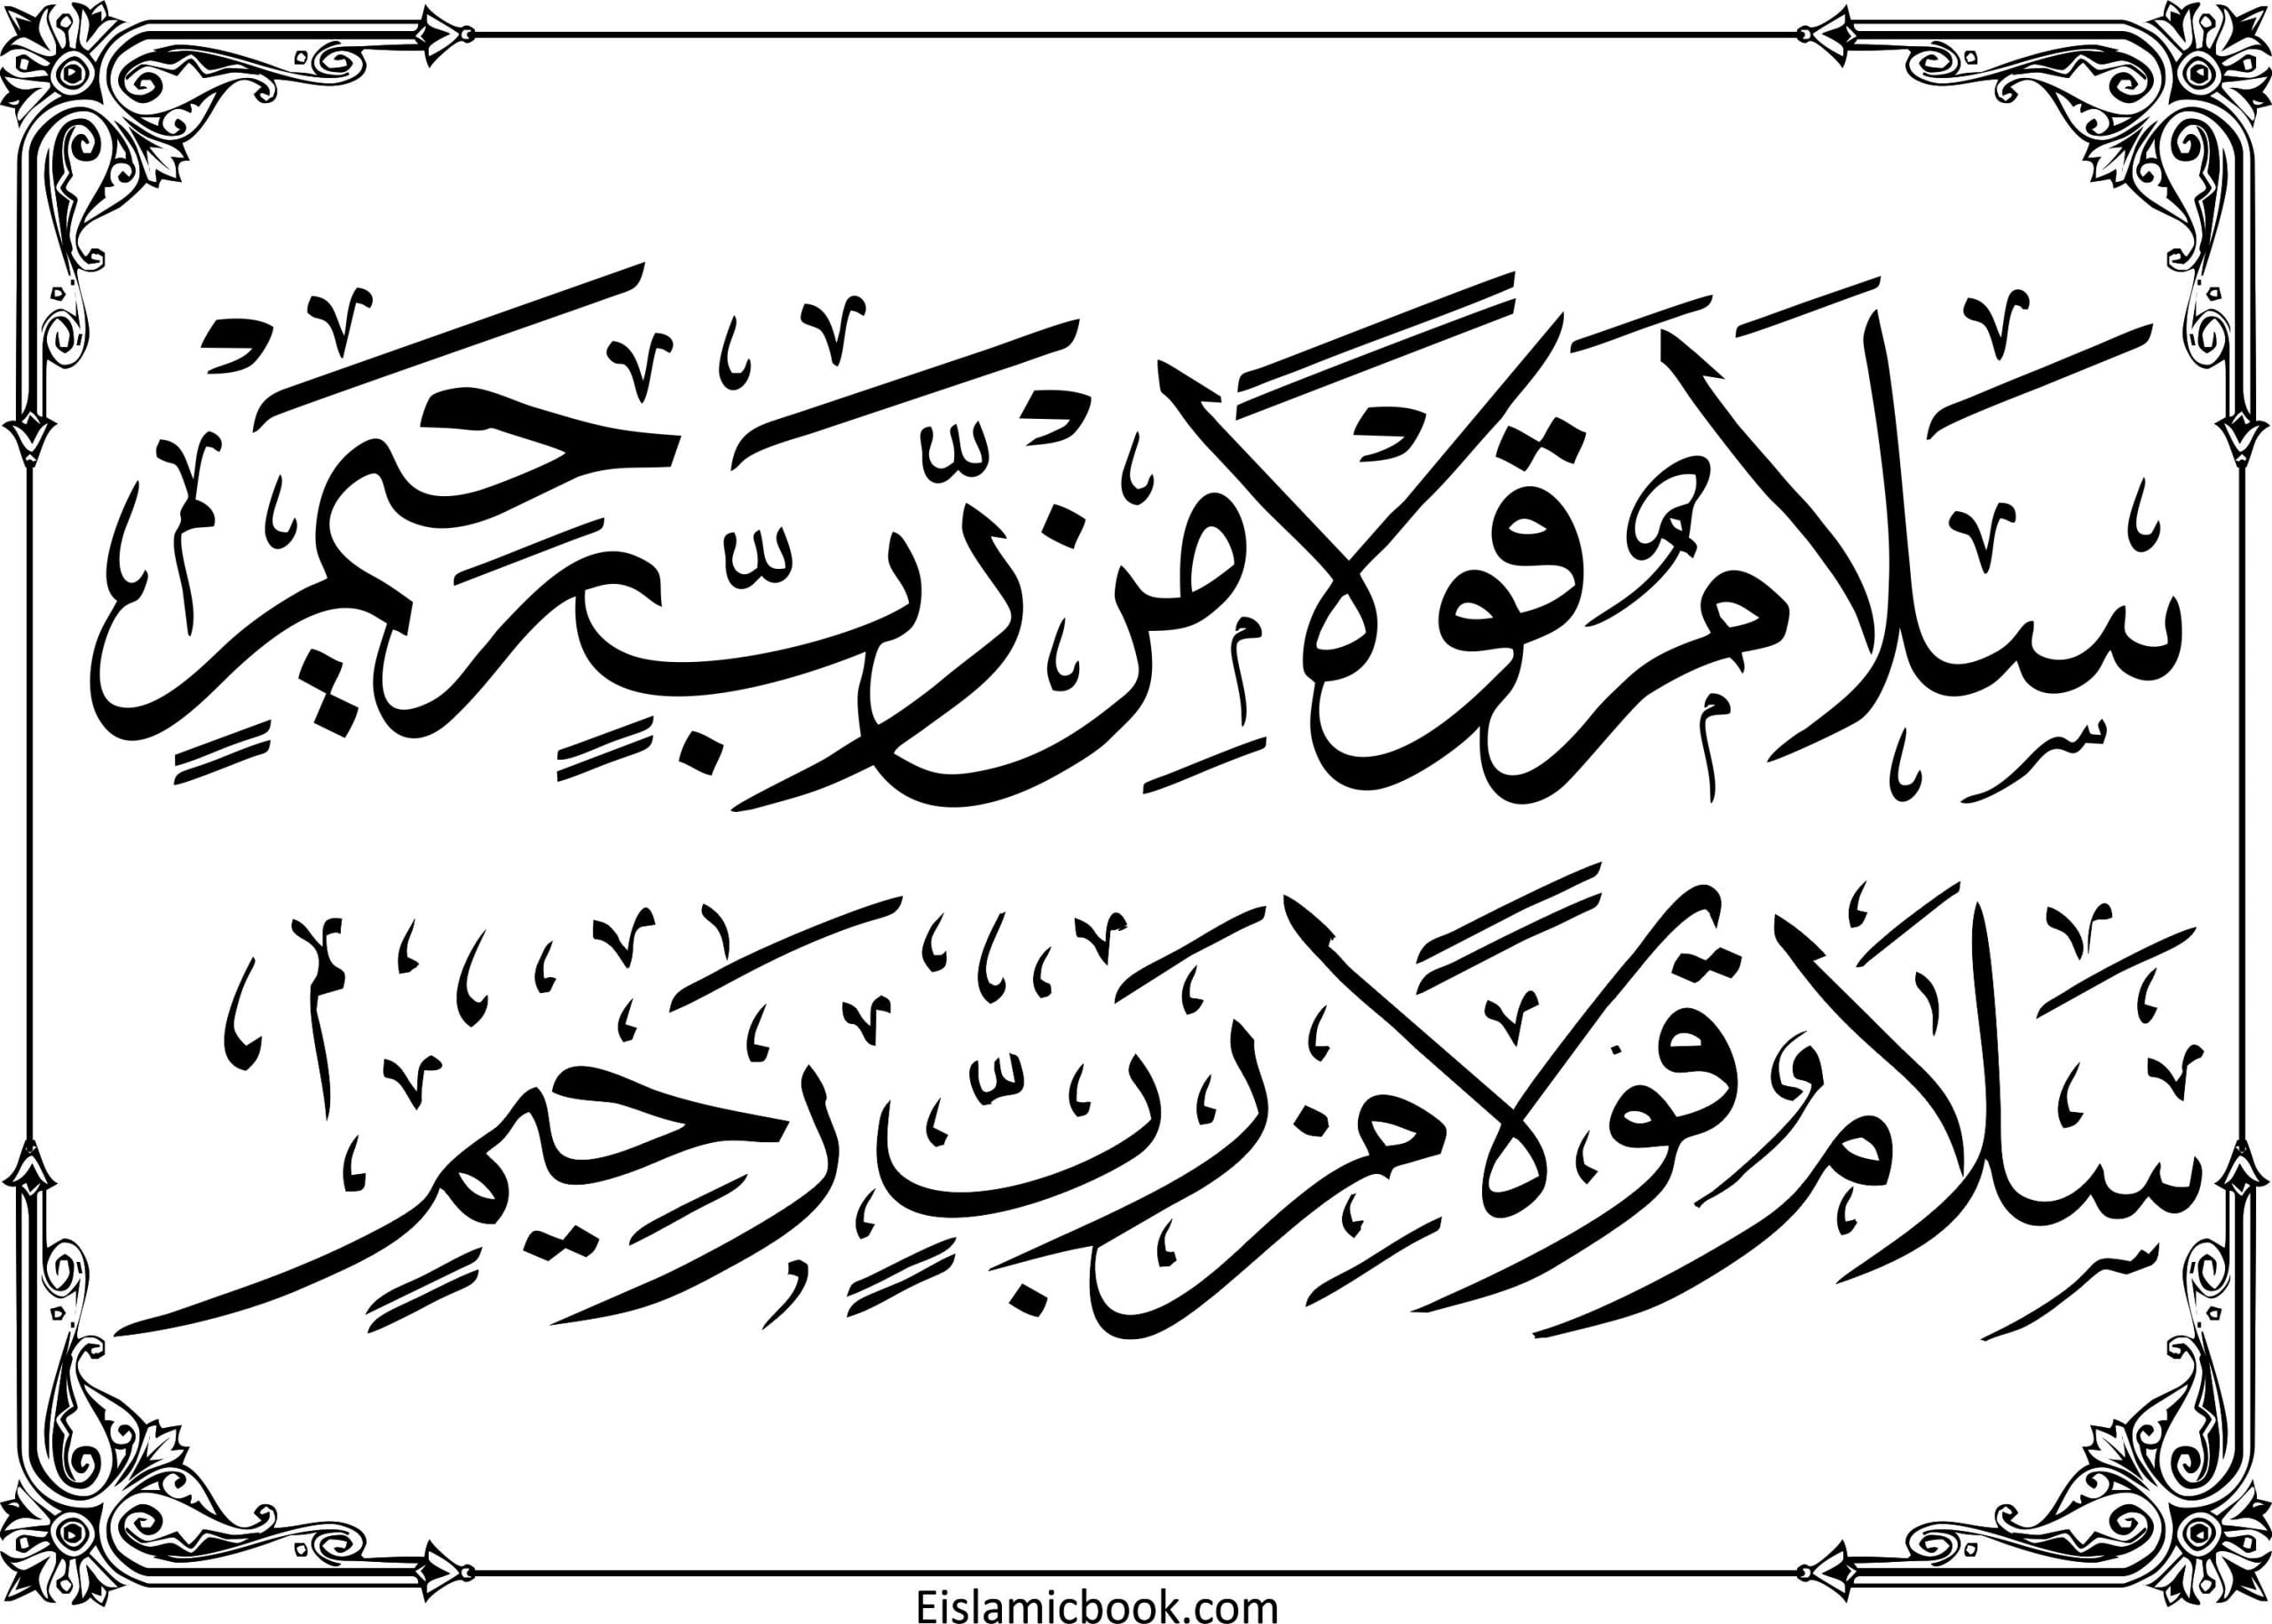 سَلَامٌ قَوْلًا مِنْ رَبٍّ رَحِيمٍ
سَلَامٌ قَوْلًا مِنْ رَبٍّ رَحِيمٍ
Eislamicbook.com